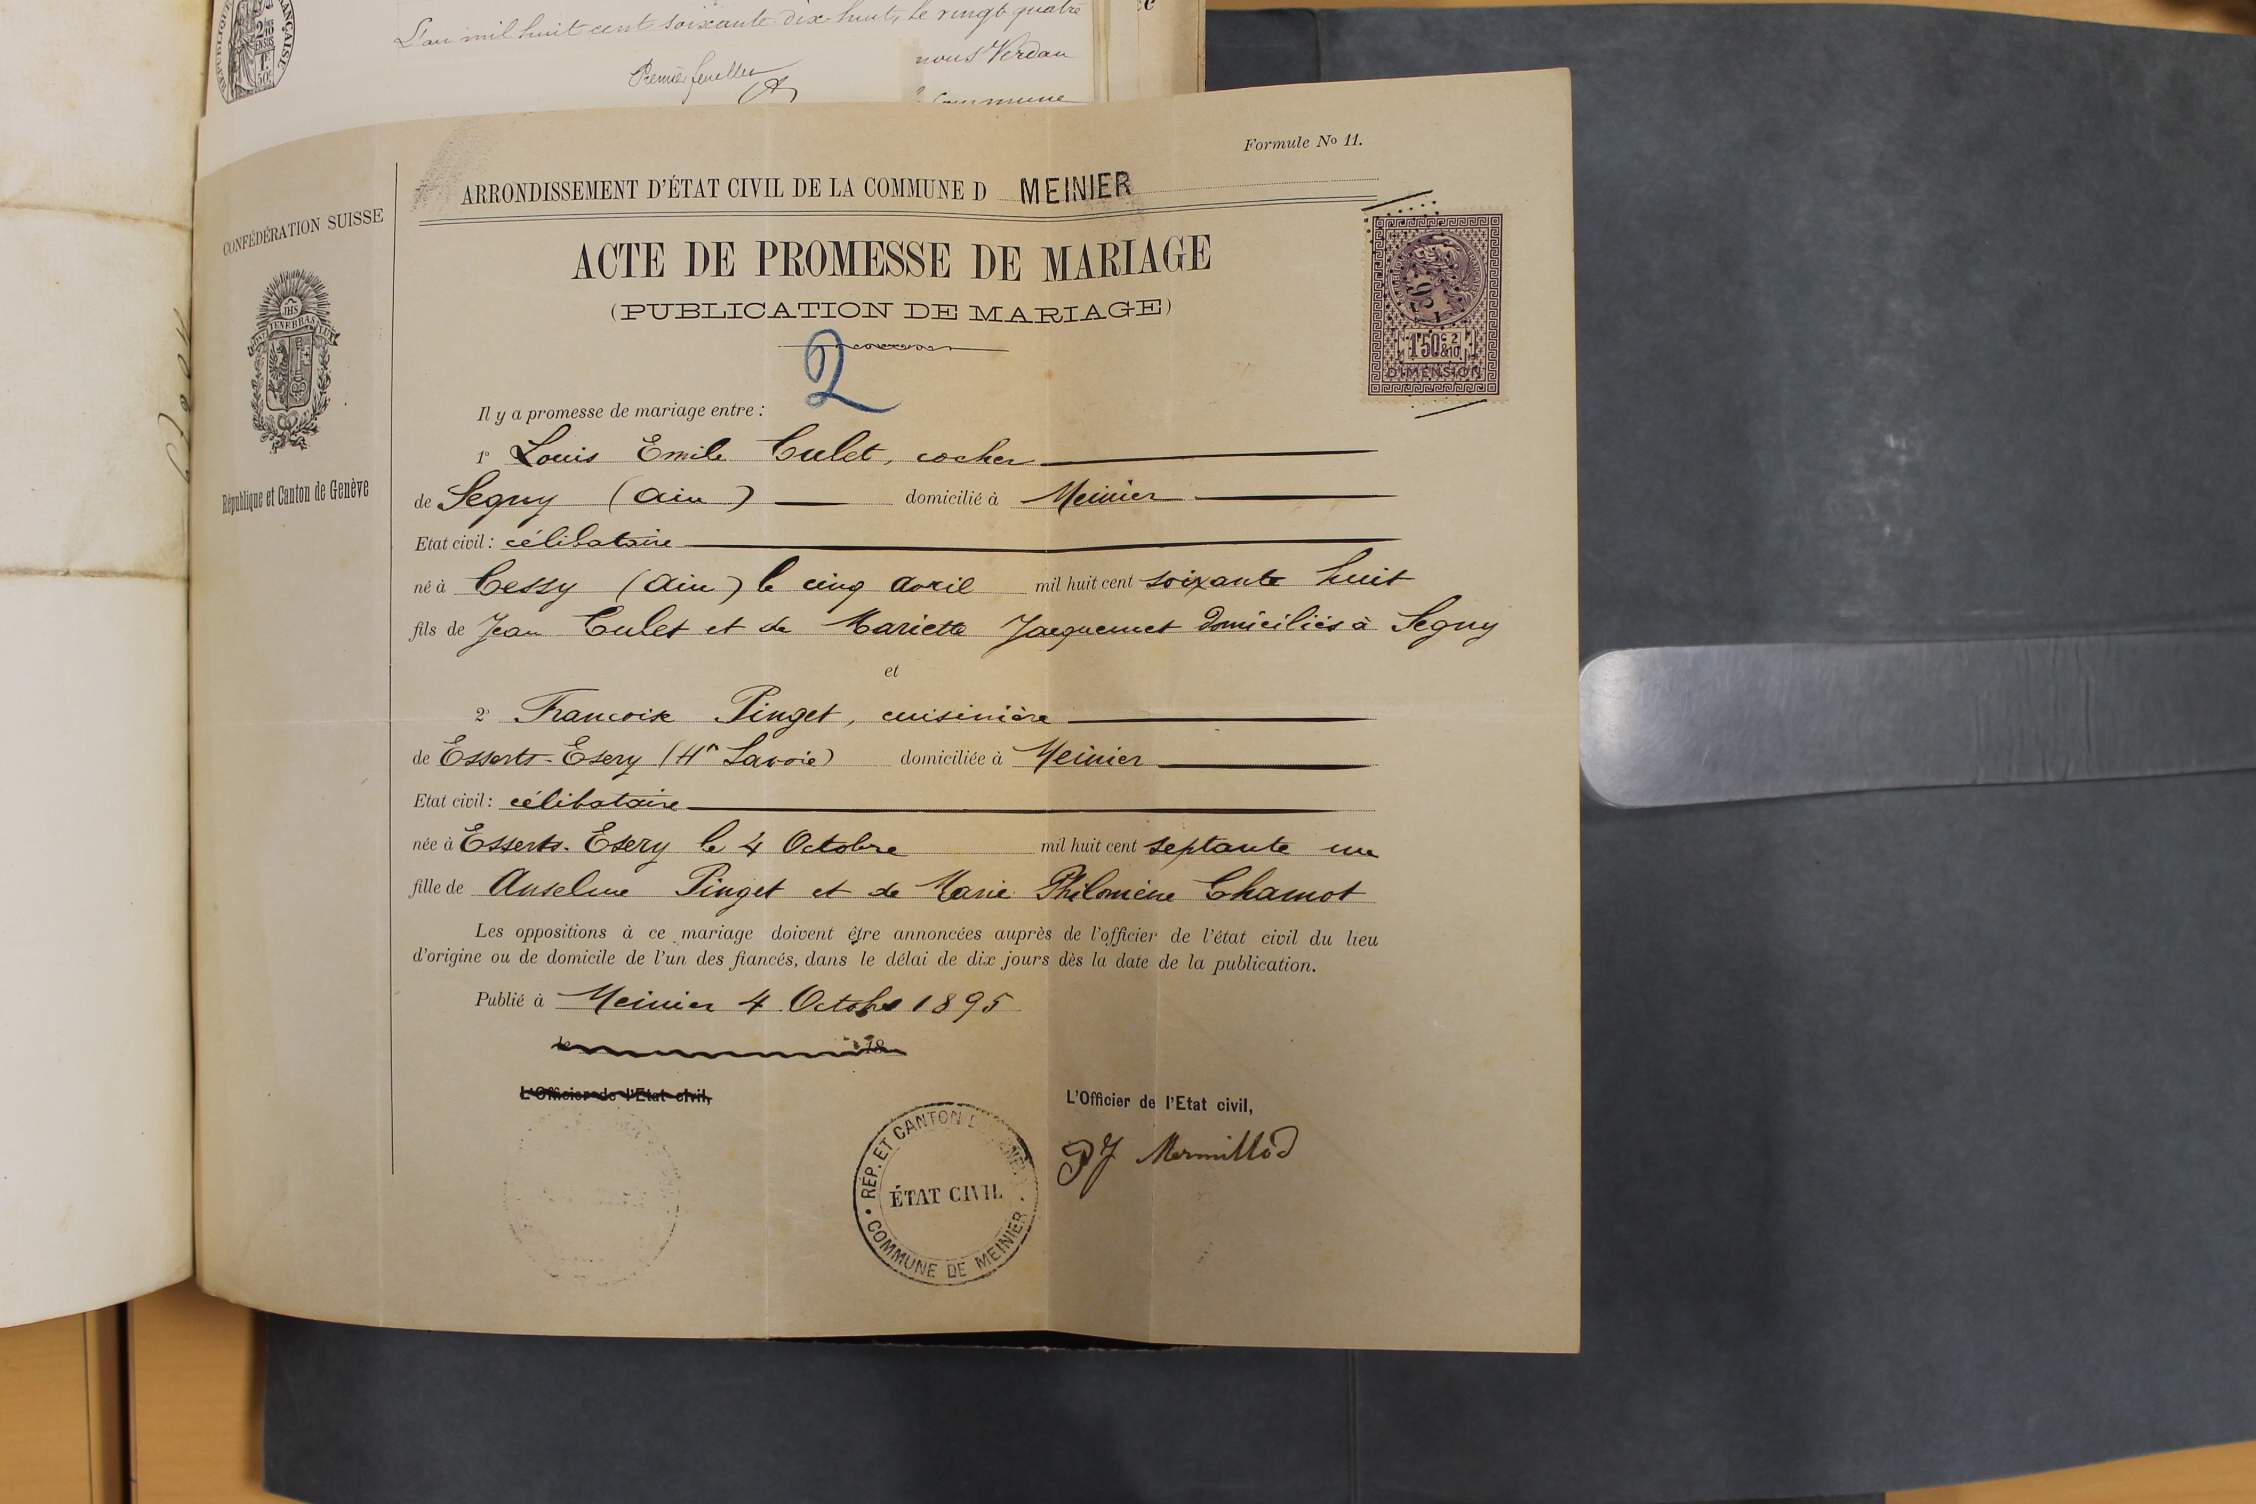 RÉPUBLIQUE FRANÇAISE
2/10 EN SUS
1F 50c
L'an mil huit cent soixante dix huit, le vingt quatre
Premier feuillet
nous Verdan
commune
Formule No 11.
ARRONDISSEMENT D'ÉTAT CIVIL DE LA COMMUNE D MEINIER
CONFÉDÉRATION SUISSE
IHS
POST TENEBRAS LUX
République et Canton de Genève
ACTE DE PROMESSE DE MARIAGE
(PUBLICATION DE MARIAGE)
2
1F50c 2/10
DIMENSION
Il y a promesse de mariage entre :
1° Louis Emile Culet, cocher
de Segny (Ain) domicilié à Meinier
Etat civil : célibataire
né à Cessy (Ain) le cinq avril mil huit cent soixante huit
fils de Jean Culet et de Mariette Jacquemet domiciliés à Segny
et
2° Francoise Pinget, cuisinière
de Esserts-Esery (Hte Savoie) domiciliée à Meinier
Etat civil : célibataire
née à Esserts-Esery le 4 Octobre mil huit cent septante un
fille de Anselme Pinget et de Marie Philomène Chamot
Les oppositions à ce mariage doivent être annoncées auprès de l'officier de l'état civil du lieu
d'origine ou de domicile de l'un des fiancés, dans le délai de dix jours dès la date de la publication.
Publié à Meinier 4 Octobre 1895
le 18
L'Officier de l'Etat civil,
L'Officier de l'Etat civil,
PJ Mermillod
REP. ET CANTON DE GENÈVE
ÉTAT CIVIL
COMMUNE DE MEINIER